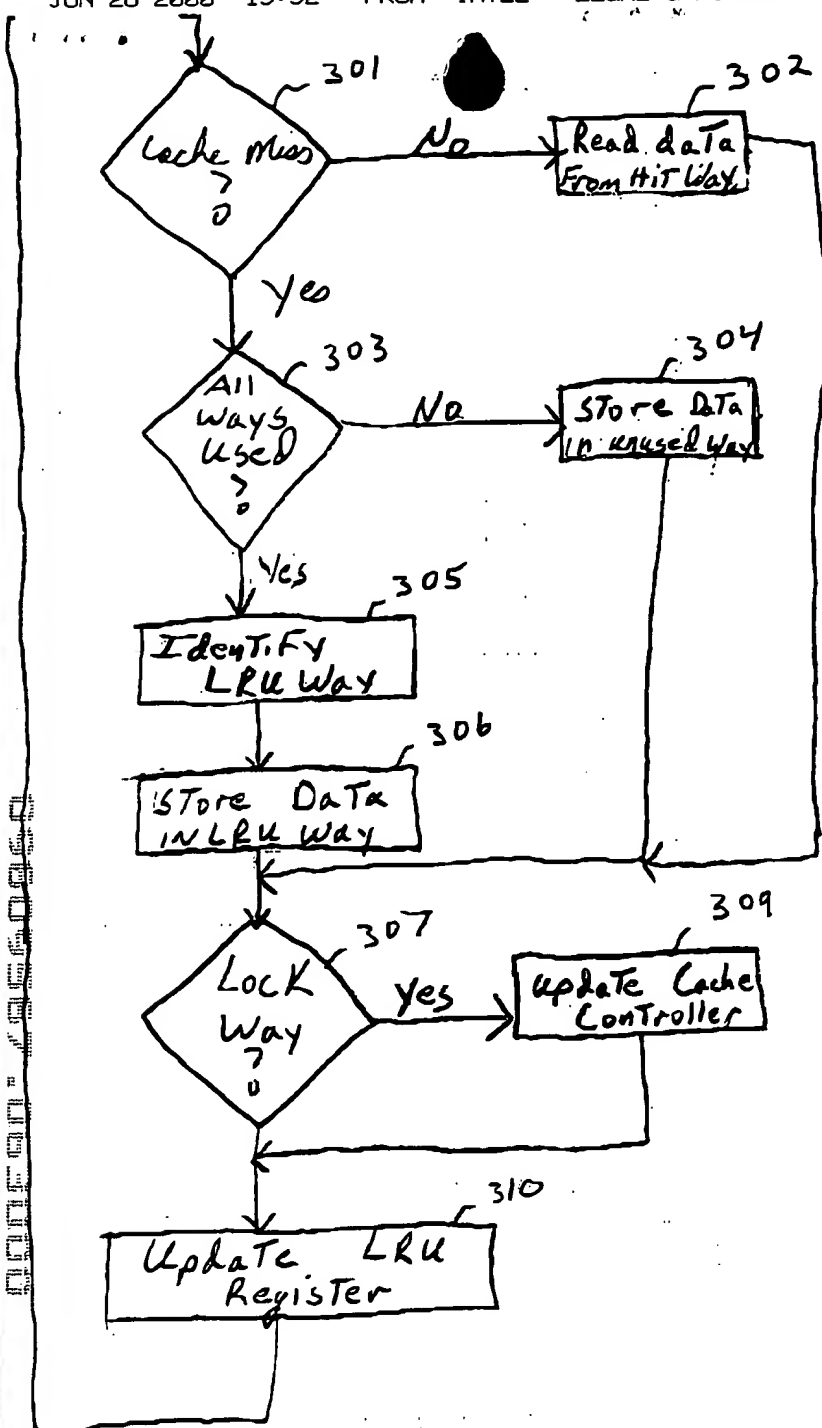 JUN 20 2000 15:52 FROM INTEL
301
302
Cache Miss
?
No
Read daTa
From HiT Way
Yes
303
304
All
Ways
Used
?
No
STore DaTa
in unused way
Yes
305
IdenTiFy
LRU Way
306
STore DaTa
IN LRU Way
307
309
Lock
Way
?
Yes
update Cache
ConTroller
310
UpdaTe LRU
RegisTer